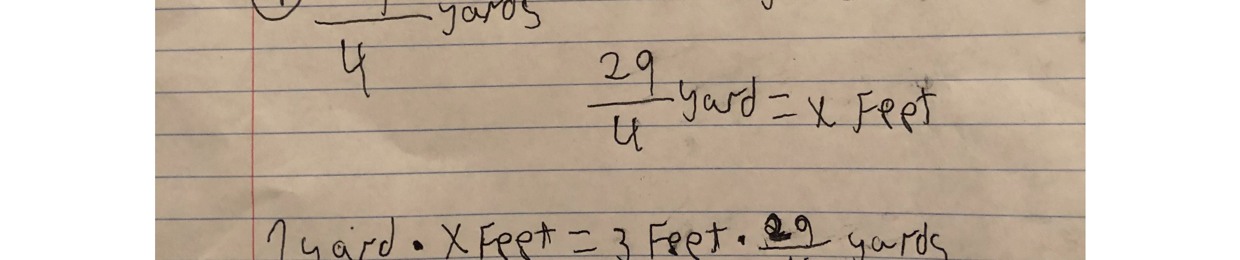 yards
4
29/4 yard = x Feet
1 yard • x Feet = 3 Feet • 29/ yards